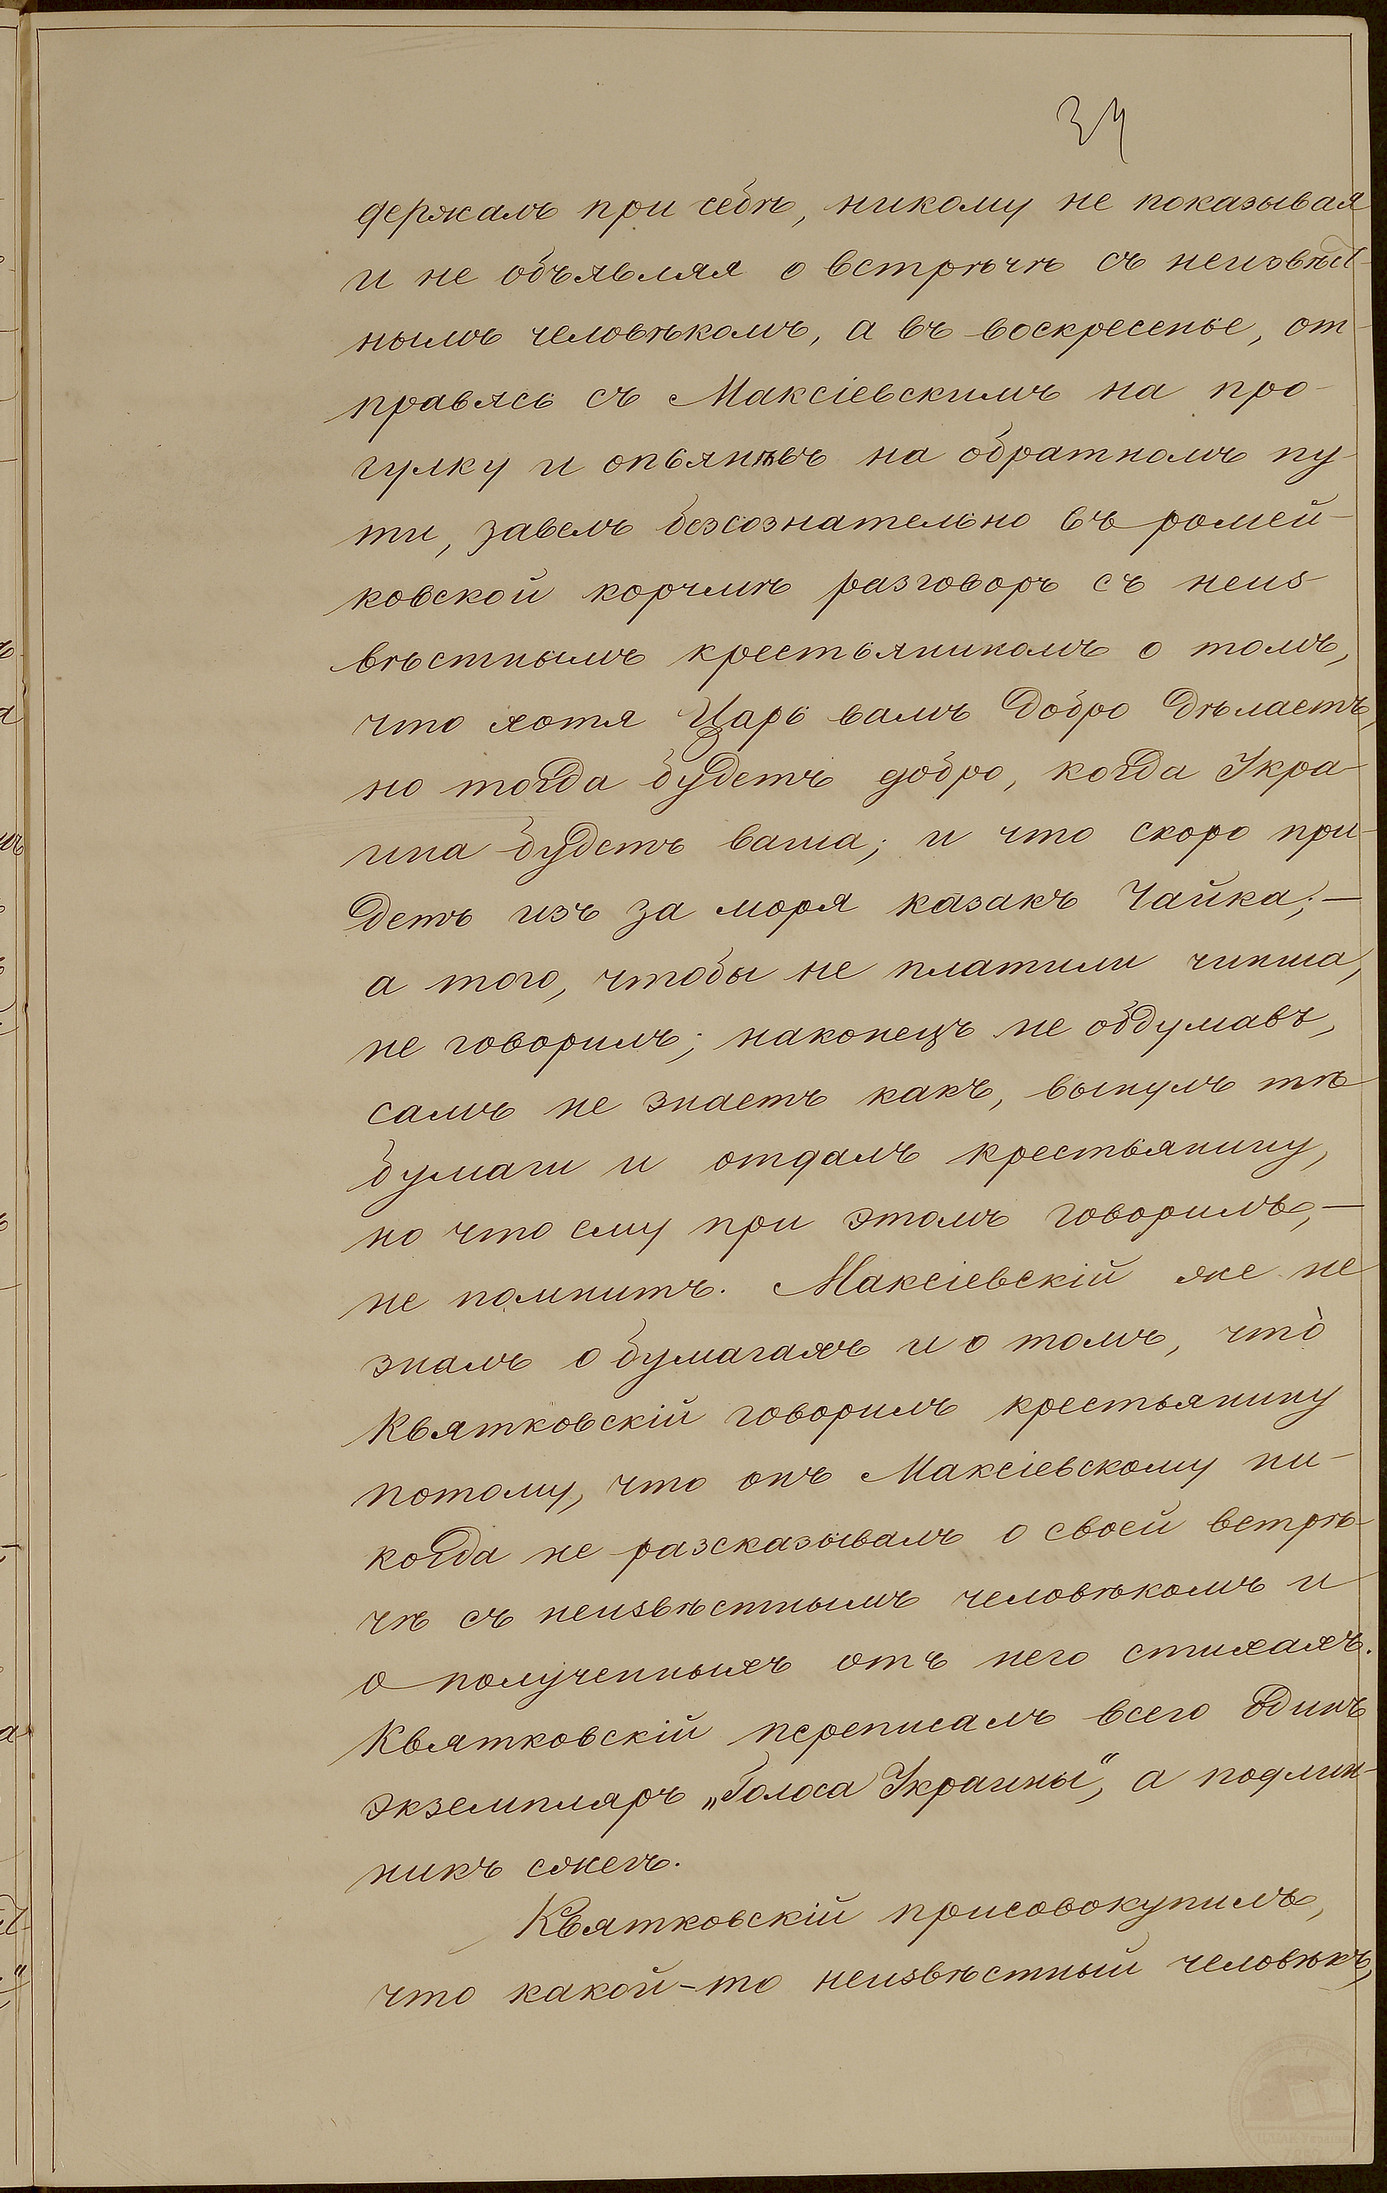 34
держалъ при себѣ, никому не показывая
и не объявляя о встрѣчѣ съ неизвѣст-
нымъ человѣкомъ, а въ воскресенье, от-
правясь съ Максіевскимъ на про-
гулку и опьянѣвъ на обратномъ пу-
ти, завелъ безсознательно въ ромей-
ковской корчмѣ разговоръ съ неиз-
вѣстнымъ крестьяниномъ о томъ,
что хотя Царь вамъ добро дѣлаетъ,
но тогда будетъ добро, когда Укра-
ина будетъ ваша; и что скоро при-
детъ изъ за моря казакъ Чайка;—
а того, чтобы не платили чинша,
не говорилъ; наконецъ не обдумавъ,
самъ не знаетъ какъ, вынулъ тѣ
бумаги и отдалъ крестьянину,
но что ему при этомъ говорилъ,—
не помнитъ. Максіевскій же не
зналъ о бумагахъ и о томъ, что
Квятковскій говорилъ крестьянину
потому, что онъ Максіевскому ни-
когда не разсказывалъ о своей встрѣ-
чѣ съ неизвѣстнымъ человѣкомъ и
о полученныхъ отъ него стихахъ.
Квятковскій переписалъ всего одинъ
экземпляръ „Голоса Украины", а подлин-
никъ сжегъ.
Квятковскій присовокупилъ,
что какой-то неизвѣстный человѣкъ,